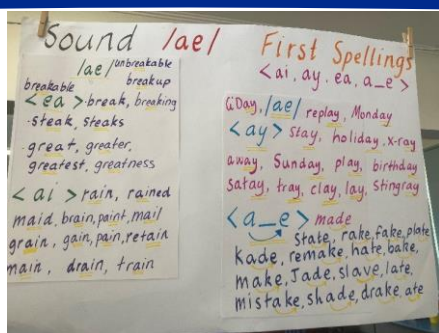 Sound /ae/
First Spellings
<ai, ay, ea, a_e>
/ae/ unbreakable
breakable breakup
<ea> break, breaking
·steak, steaks
·great, greater,
greatest, greatness
<ai> rain, rained
maid, brain, paint, mail
grain, gain, pain, retain
main, drain, train
Day, /ae/ replay, Monday
<ay> stay, holiday, x-ray
away, Sunday, play, birthday
satay, tray, clay, lay, Stingray
<a_e> made
State, rake, fake, plate
Kade, remake, hate, bake,
make, Jade, slave, late,
mistake, shade, drake, ate